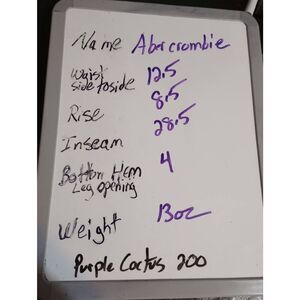 Name Abercrombie
Waist
side to side 12.5
Rise 8.5
Inseam 28.5
Bottom Hem
Leg opening 4
Weight 13oz
Purple Cactus 200